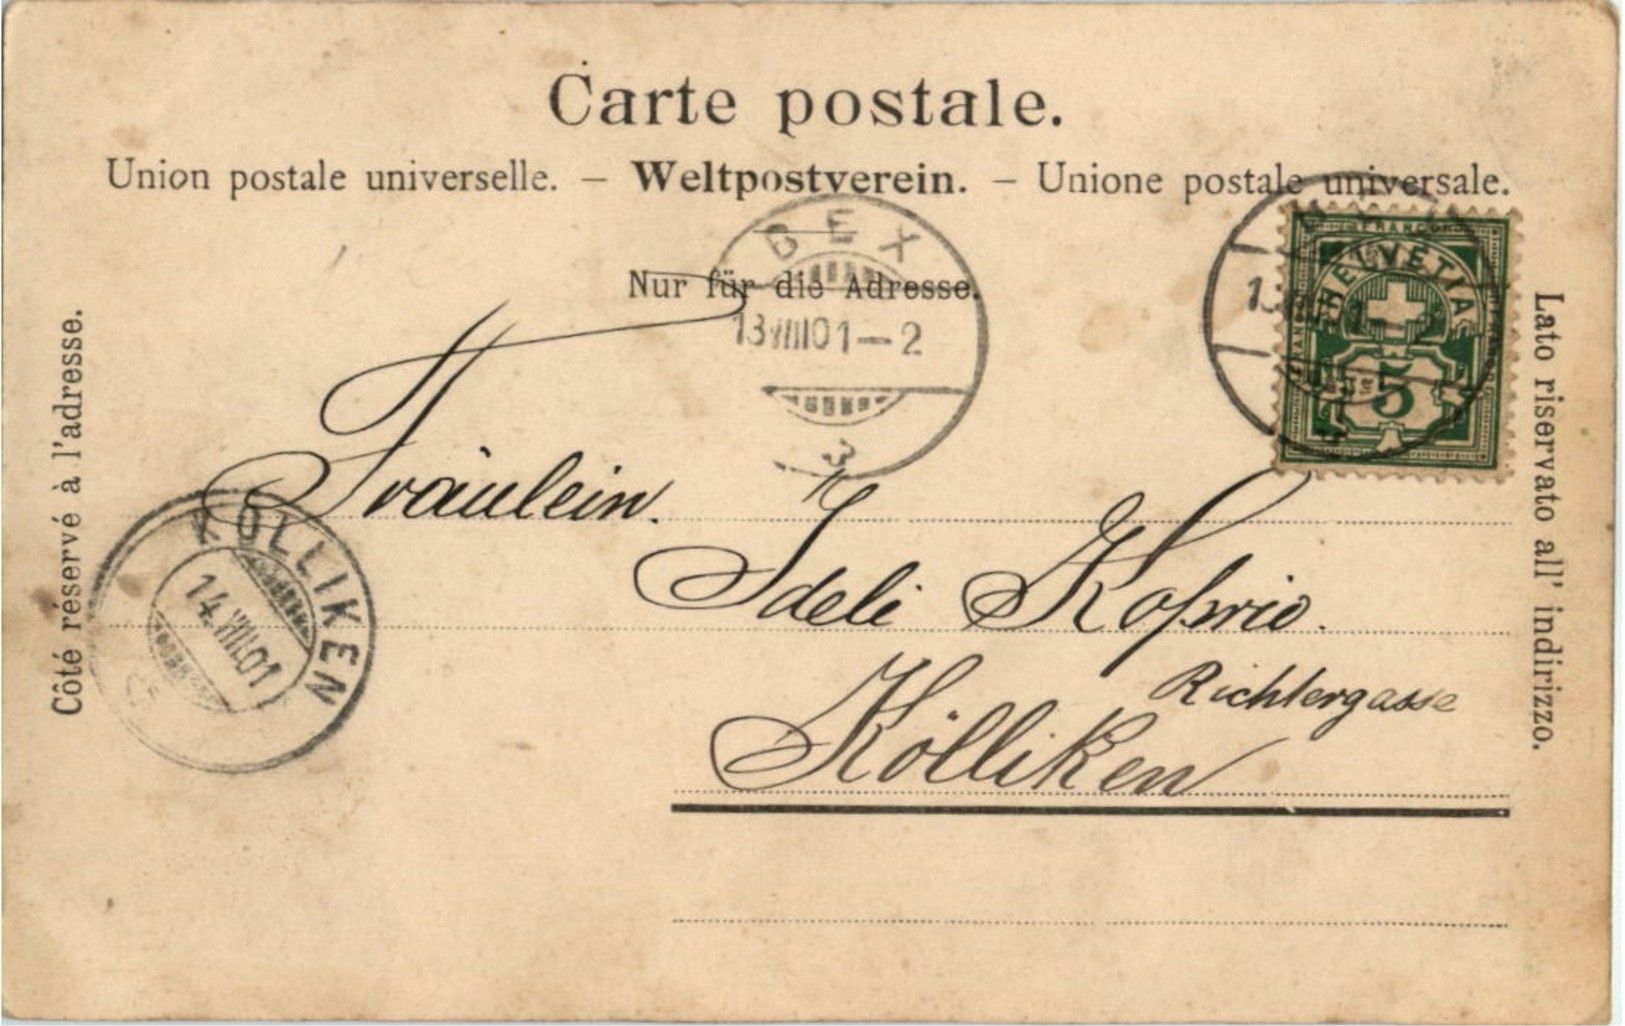 Carte postale.
Union postale universelle. – Weltpostverein. – Unione postale universale.
Nur für die Adresse.
Côté réservé à l'adresse.
Lato riservato all' indirizzo.
BEX
13 VIII 01 – 2
3
FRANCO
HELVETIA
5
Fräulein.
Ideli Kosprio.
Richtergasse
Kölliken
KÖLLIKEN
14. VIII. 01